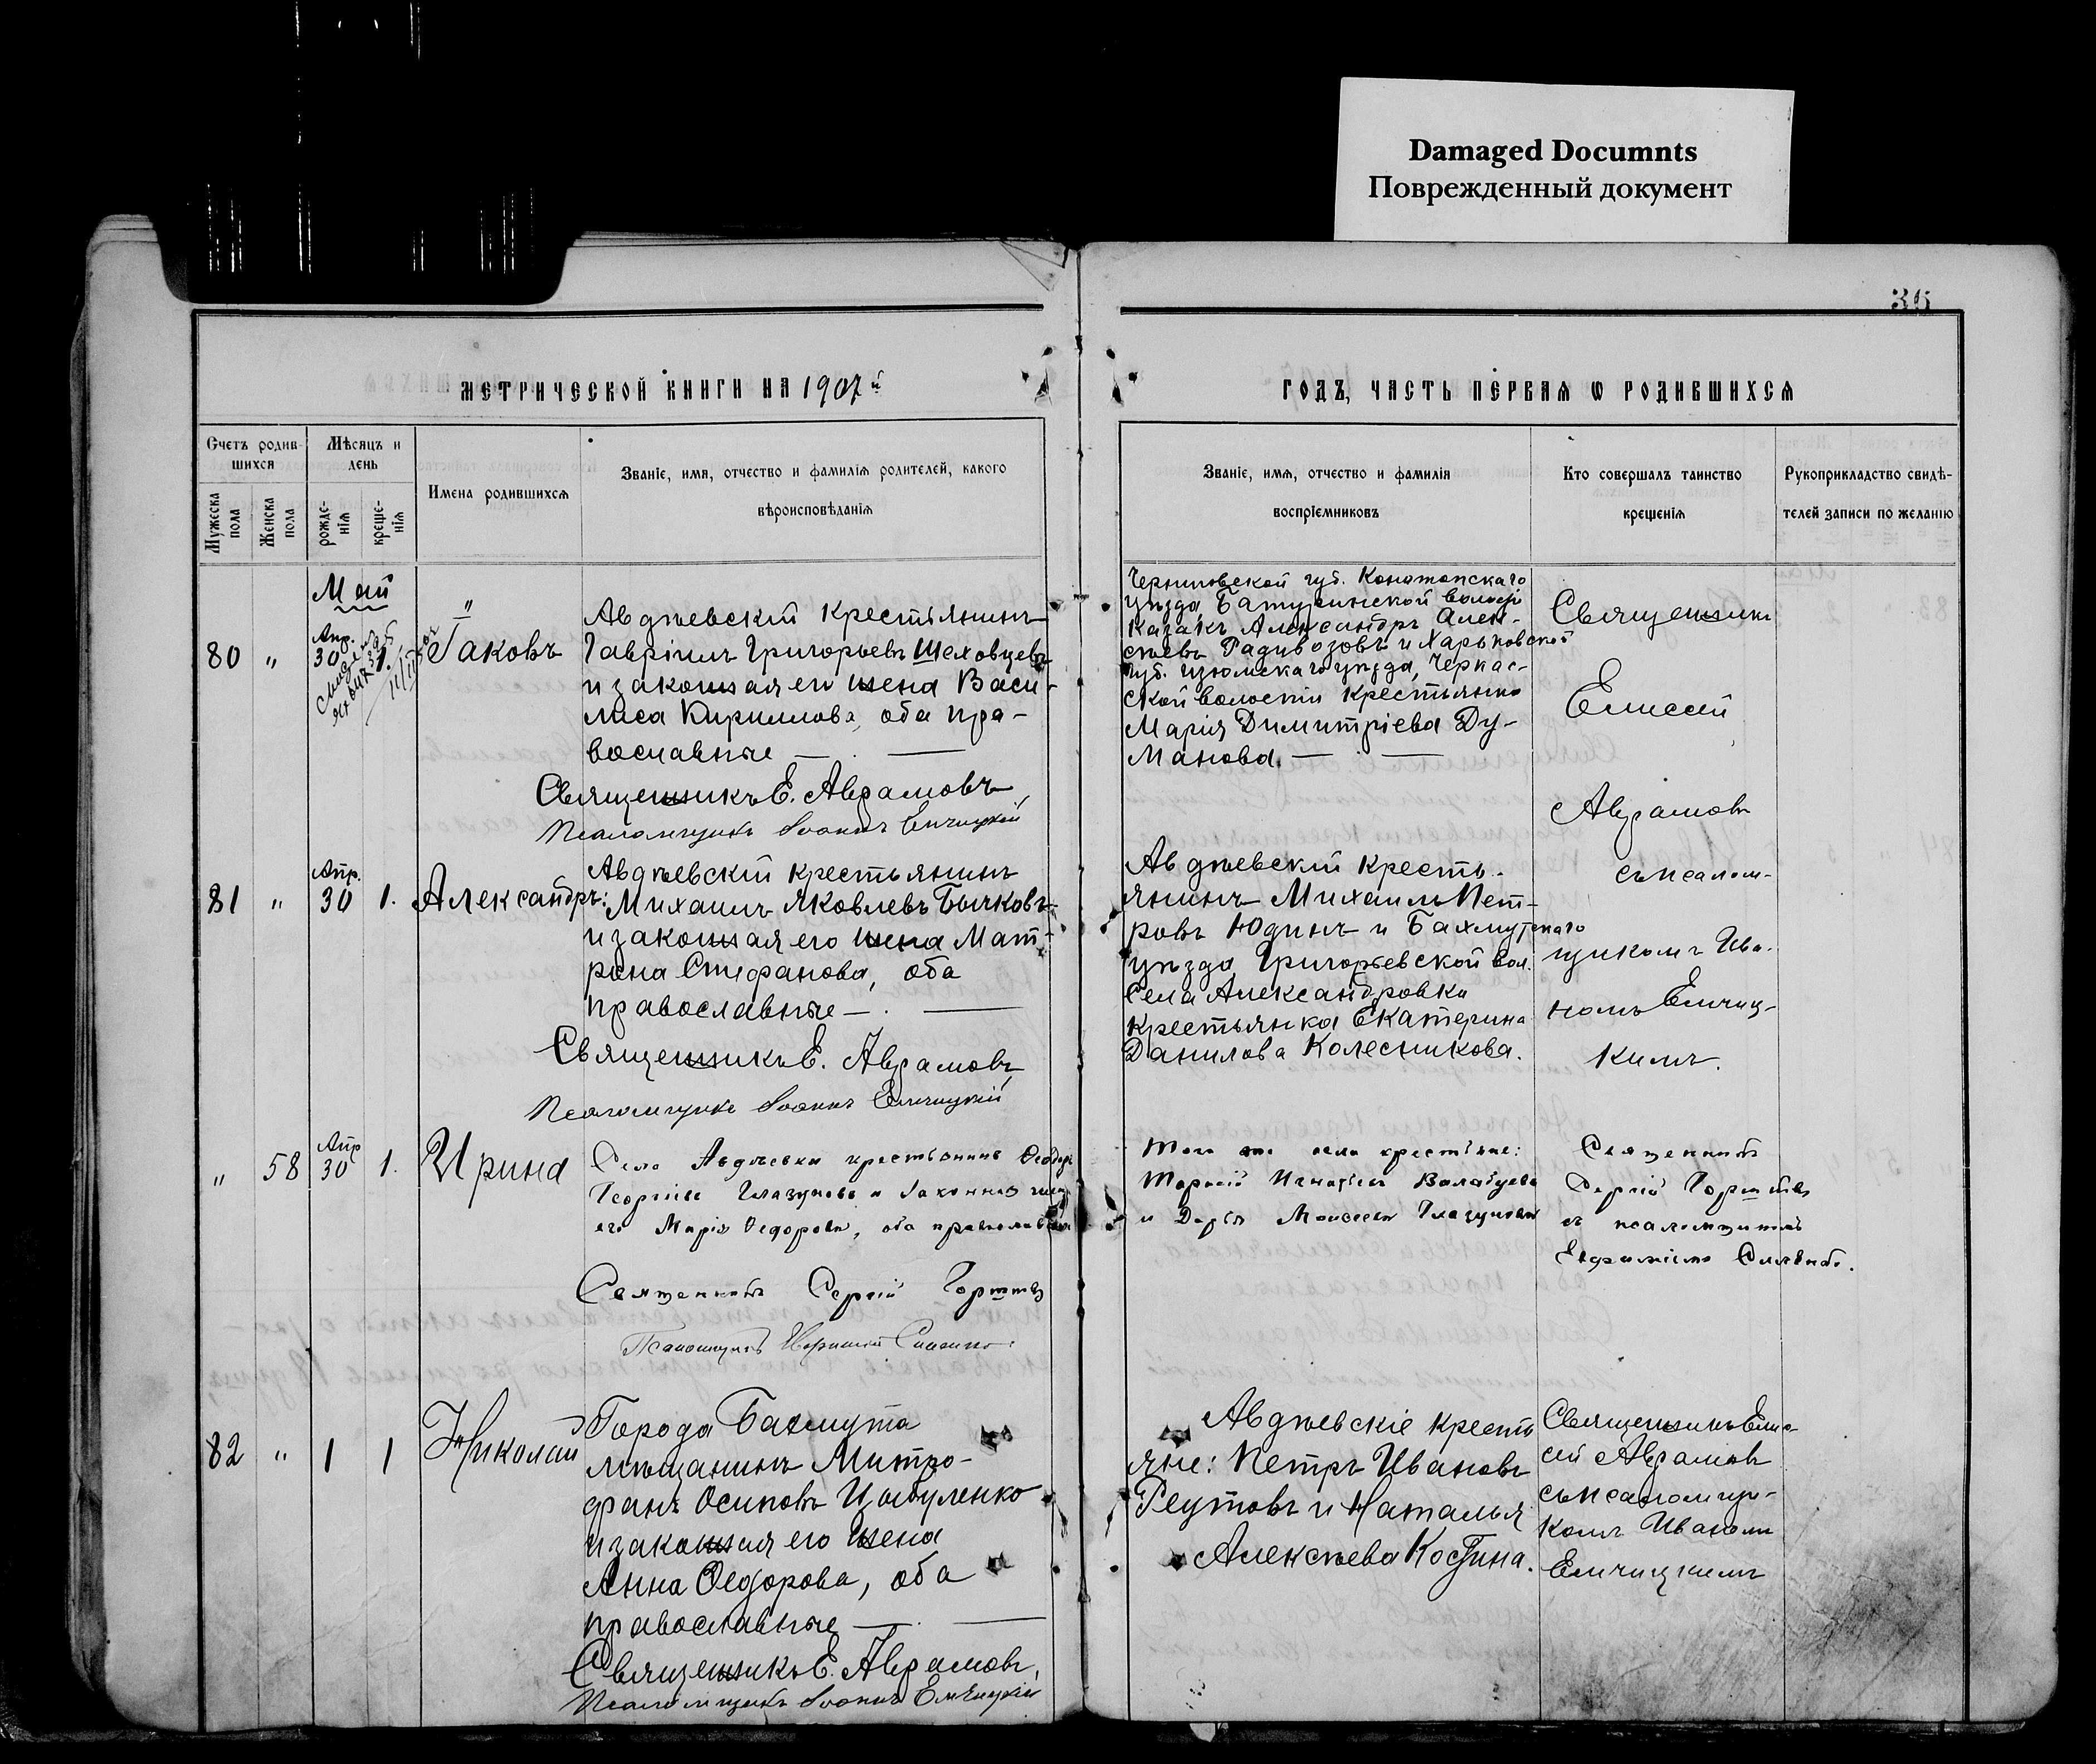 Damaged Documnts
Поврежденный документ
36
МЕТРИЧЕСКОЙ КНИГИ НА 1907й
ГОДЪ, ЧАСТЬ ПЕРВАЯ Ѡ РОДИВШИХСЯ
Счетъ родив-
шихся
Мѣсяцъ и
день
Мужеска пола
Женска пола
рожде-
нія
креще-
нія
Имена родившихся
Званіе, имя, отчество и фамилія родителей, какого
вѣроисповѣданія
Званіе, имя, отчество и фамилія
воспріемниковъ
Кто совершалъ таинство
крещенія
Рукоприкладство свидѣ-
телей записи по желанію
Май
80 " Апр. 30 1. Іаковъ
Авдѣевскій крестьянинъ
Гавріилъ Григорьевъ Шеховцевъ
и законная его жена Васи-
лиса Кириллова, оба пра-
вославные
Священникъ Е. Аврамовъ
Псаломщикъ Іоаннъ
Черниговской губ. Конотопскаго
уѣзда Батуринской волости
казакъ Александръ Алек-
сѣевъ Радивозовъ и Харьковской
губ. Изюмскаго уѣзда, Черкас-
ской волости крестьянка
Марія Димитріева Ду-
манова.
Священникъ
Елисей
Аврамовъ
съ псалом-
щикомъ Ива-
номъ
кимъ.
81 " Апр. 30 1. Александръ:
Авдѣевскій крестьянинъ
Михаилъ Яковлевъ Бычковъ
и законная его жена Мат-
рона Стефанова, оба
православные
Священникъ Е. Аврамовъ
Псаломщикъ Іоаннъ
Авдѣевскій кресть-
янинъ Михаилъ Пет-
ровъ Юдинъ и Бахмутскаго
уѣзда, Григорьевской вол.
села Александровка
крестьянка Екатерина
Данилова Колесникова.
" 58 Апр 30 1. Ирина
Села Авдѣевки крестьянинъ Ѳеодоръ
Георгіевъ Глазуновъ и законная жена
его Марія Ѳедорова, оба православные
Священникъ Сергій
Псаломщикъ
Того же села крестьяне:
и Дарья Моисеева Глазунова
Священникъ
Сергій
съ псаломщикомъ
82 " 1 1 Николай
Города Бахмута
мѣщанинъ Митро-
фанъ Осиповъ Цыбуленко
и законная его жена
Анна Ѳедорова, оба
православные
Священникъ Е. Аврамовъ,
Псаломщикъ Іоаннъ
Авдѣевскіе кресть
яне: Петръ Ивановъ
Реутовъ и Наталья
Алексѣева Костина.
Священникъ Ели-
сей Аврамовъ
съ псаломщи-
комъ Иваномъ